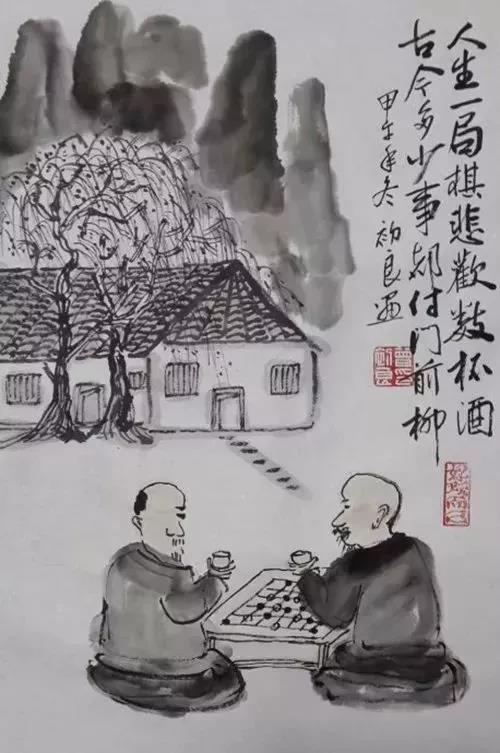 人生一局棋悲歡数杯酒
古今多少事都付门前柳
甲午年冬 初良画